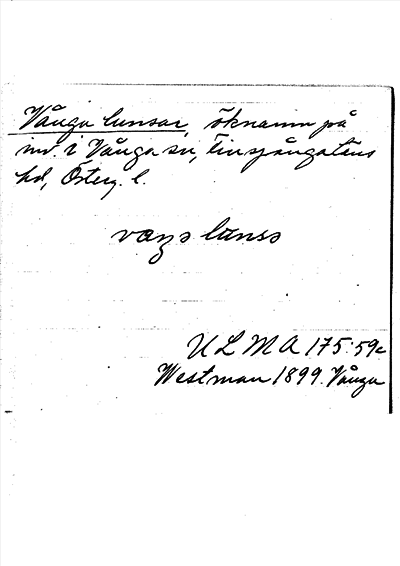 Vånga lunsar, öknamn på
inv. i Vånga sn, Finspångaläns
hd, Österg. l.
ULMA 175:59c
Westman 1899. Vånga